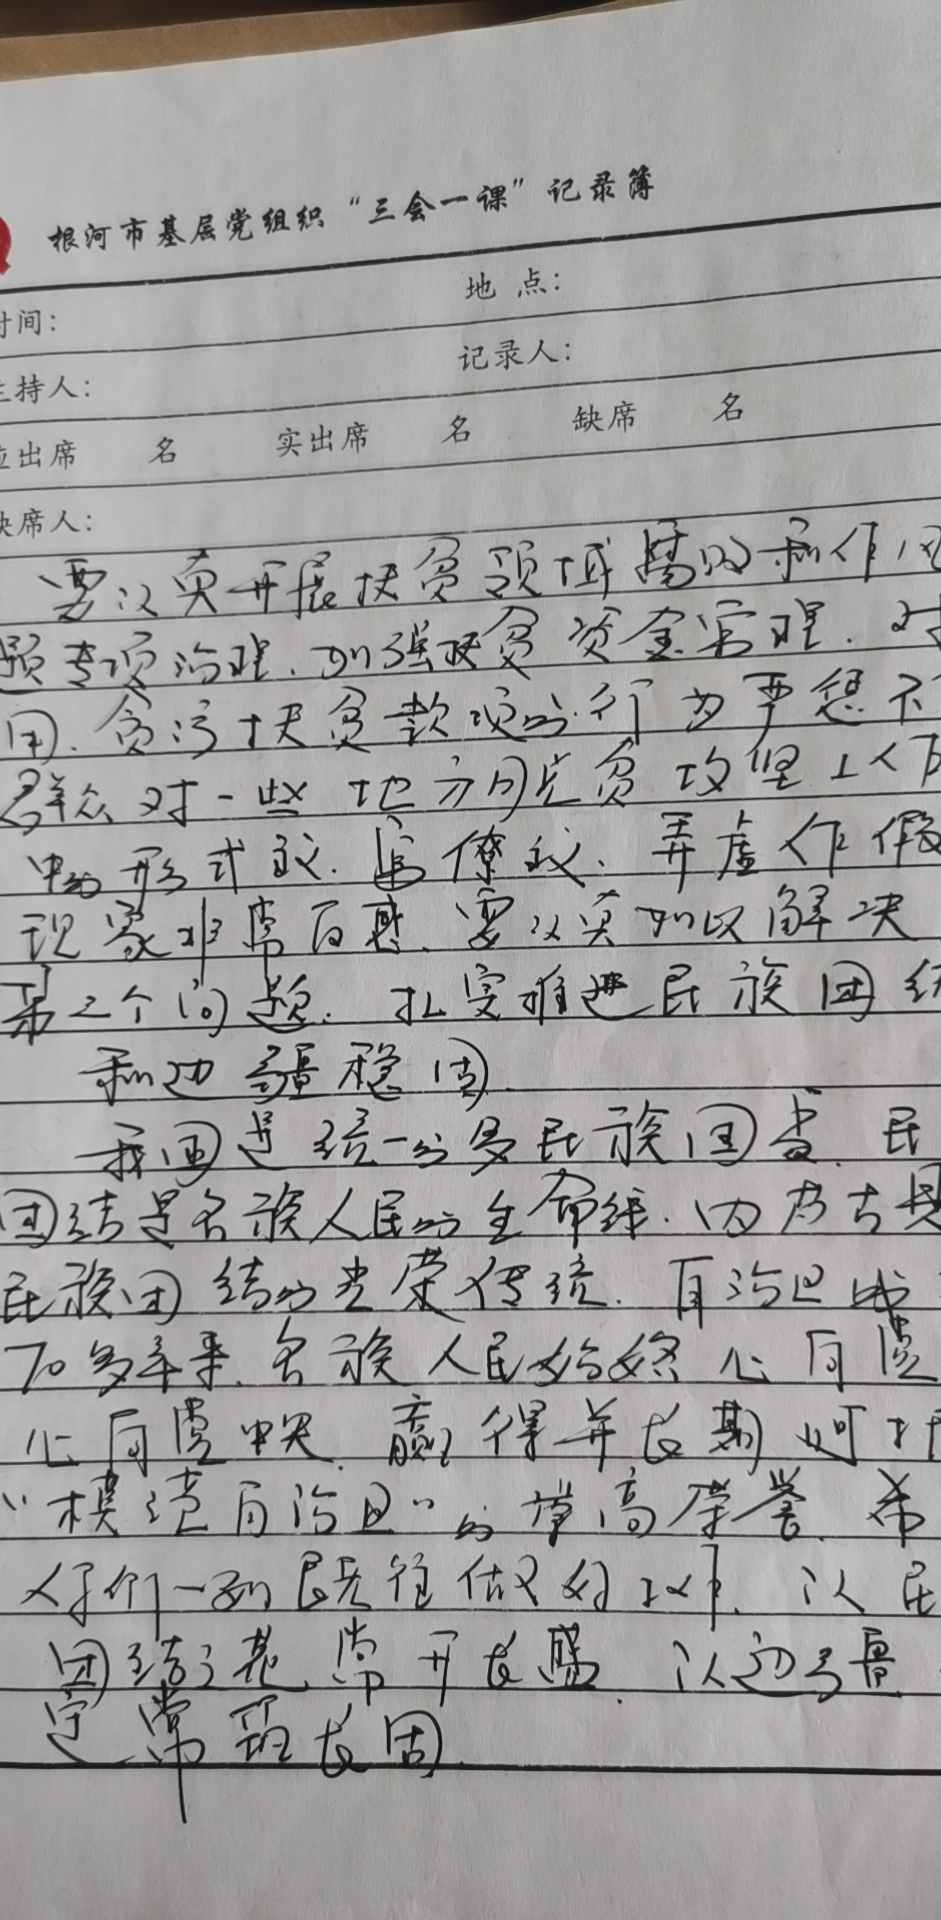 根河市基层党组织“三会一课”记录簿
时间： 地 点：
主持人： 记录人：
应出席 名 实出席 名 缺席 名
缺席人：
要认真开展扶贫领域腐败和作风
题专项治理、加强扶贫资金管理、对
用、贪污扶贫款项的行为严惩不
群众对一些地方的脱贫攻坚工作
中的形式主义、官僚主义、弄虚作假
现象非常反感、要认真加以解决
第三个问题、扎实推进民族团结
和边疆稳固
我国是统一的多民族国家、民
团结是各族人民的生命线、内蒙古具
民族团结的光荣传统、自治区成
70多年来、各族人民始终心向党
心向党中央、赢得并长期呵护
“模范自治区”的崇高荣誉、希
们一如既往做好工作、让民
团结之花常开长盛、让边疆
定常长固